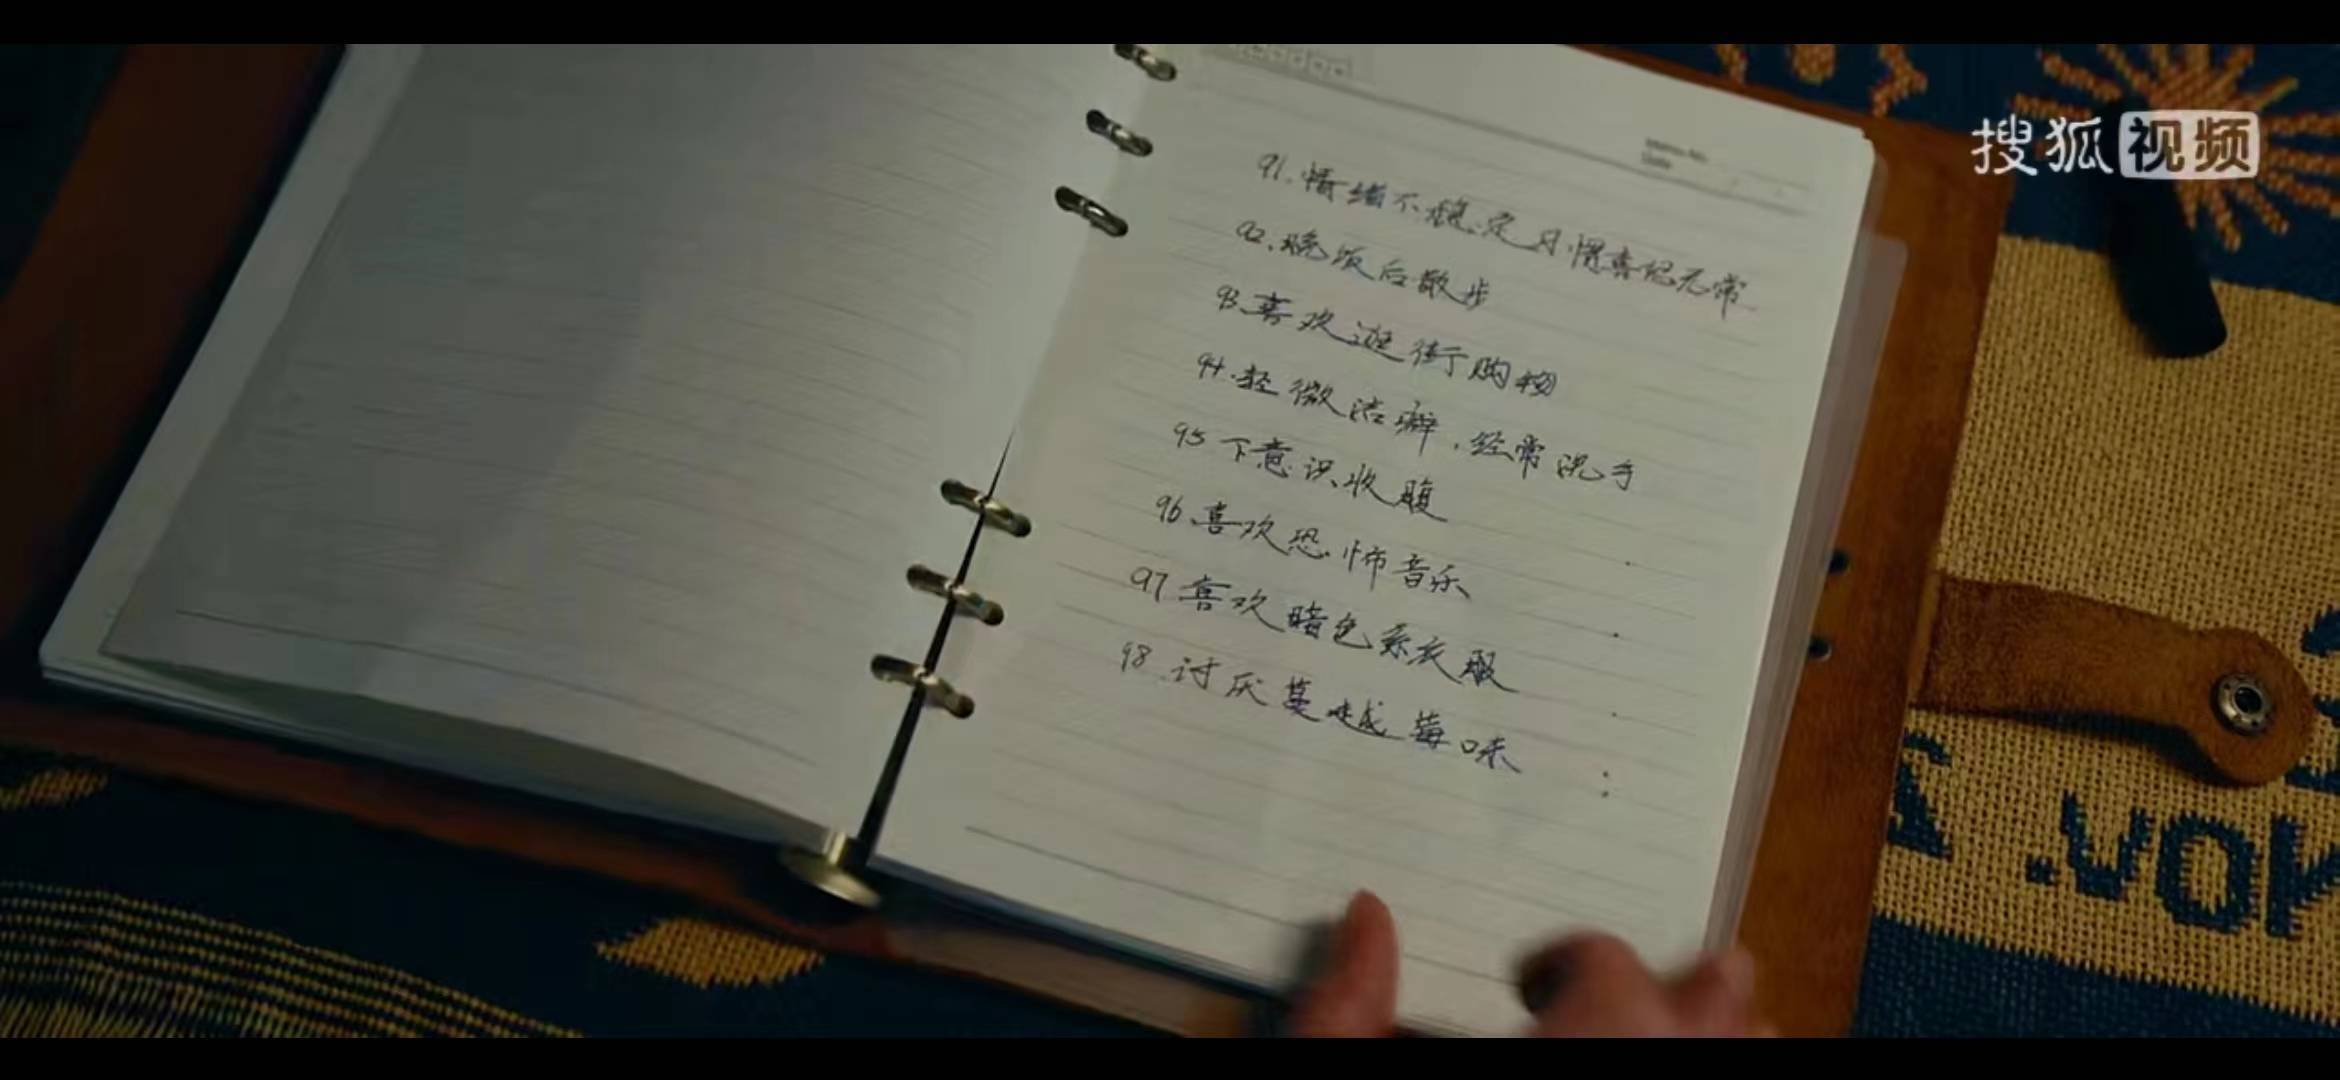 搜狐视频
91.情绪不稳定月惯喜怒无常
92.晚饭后散步
93.喜欢逛街购物
94.轻微洁癖,经常洗手
95.下意识收腹
96.喜欢恐怖音乐
97.喜欢暗色系衣服
98.讨厌蔓越莓味